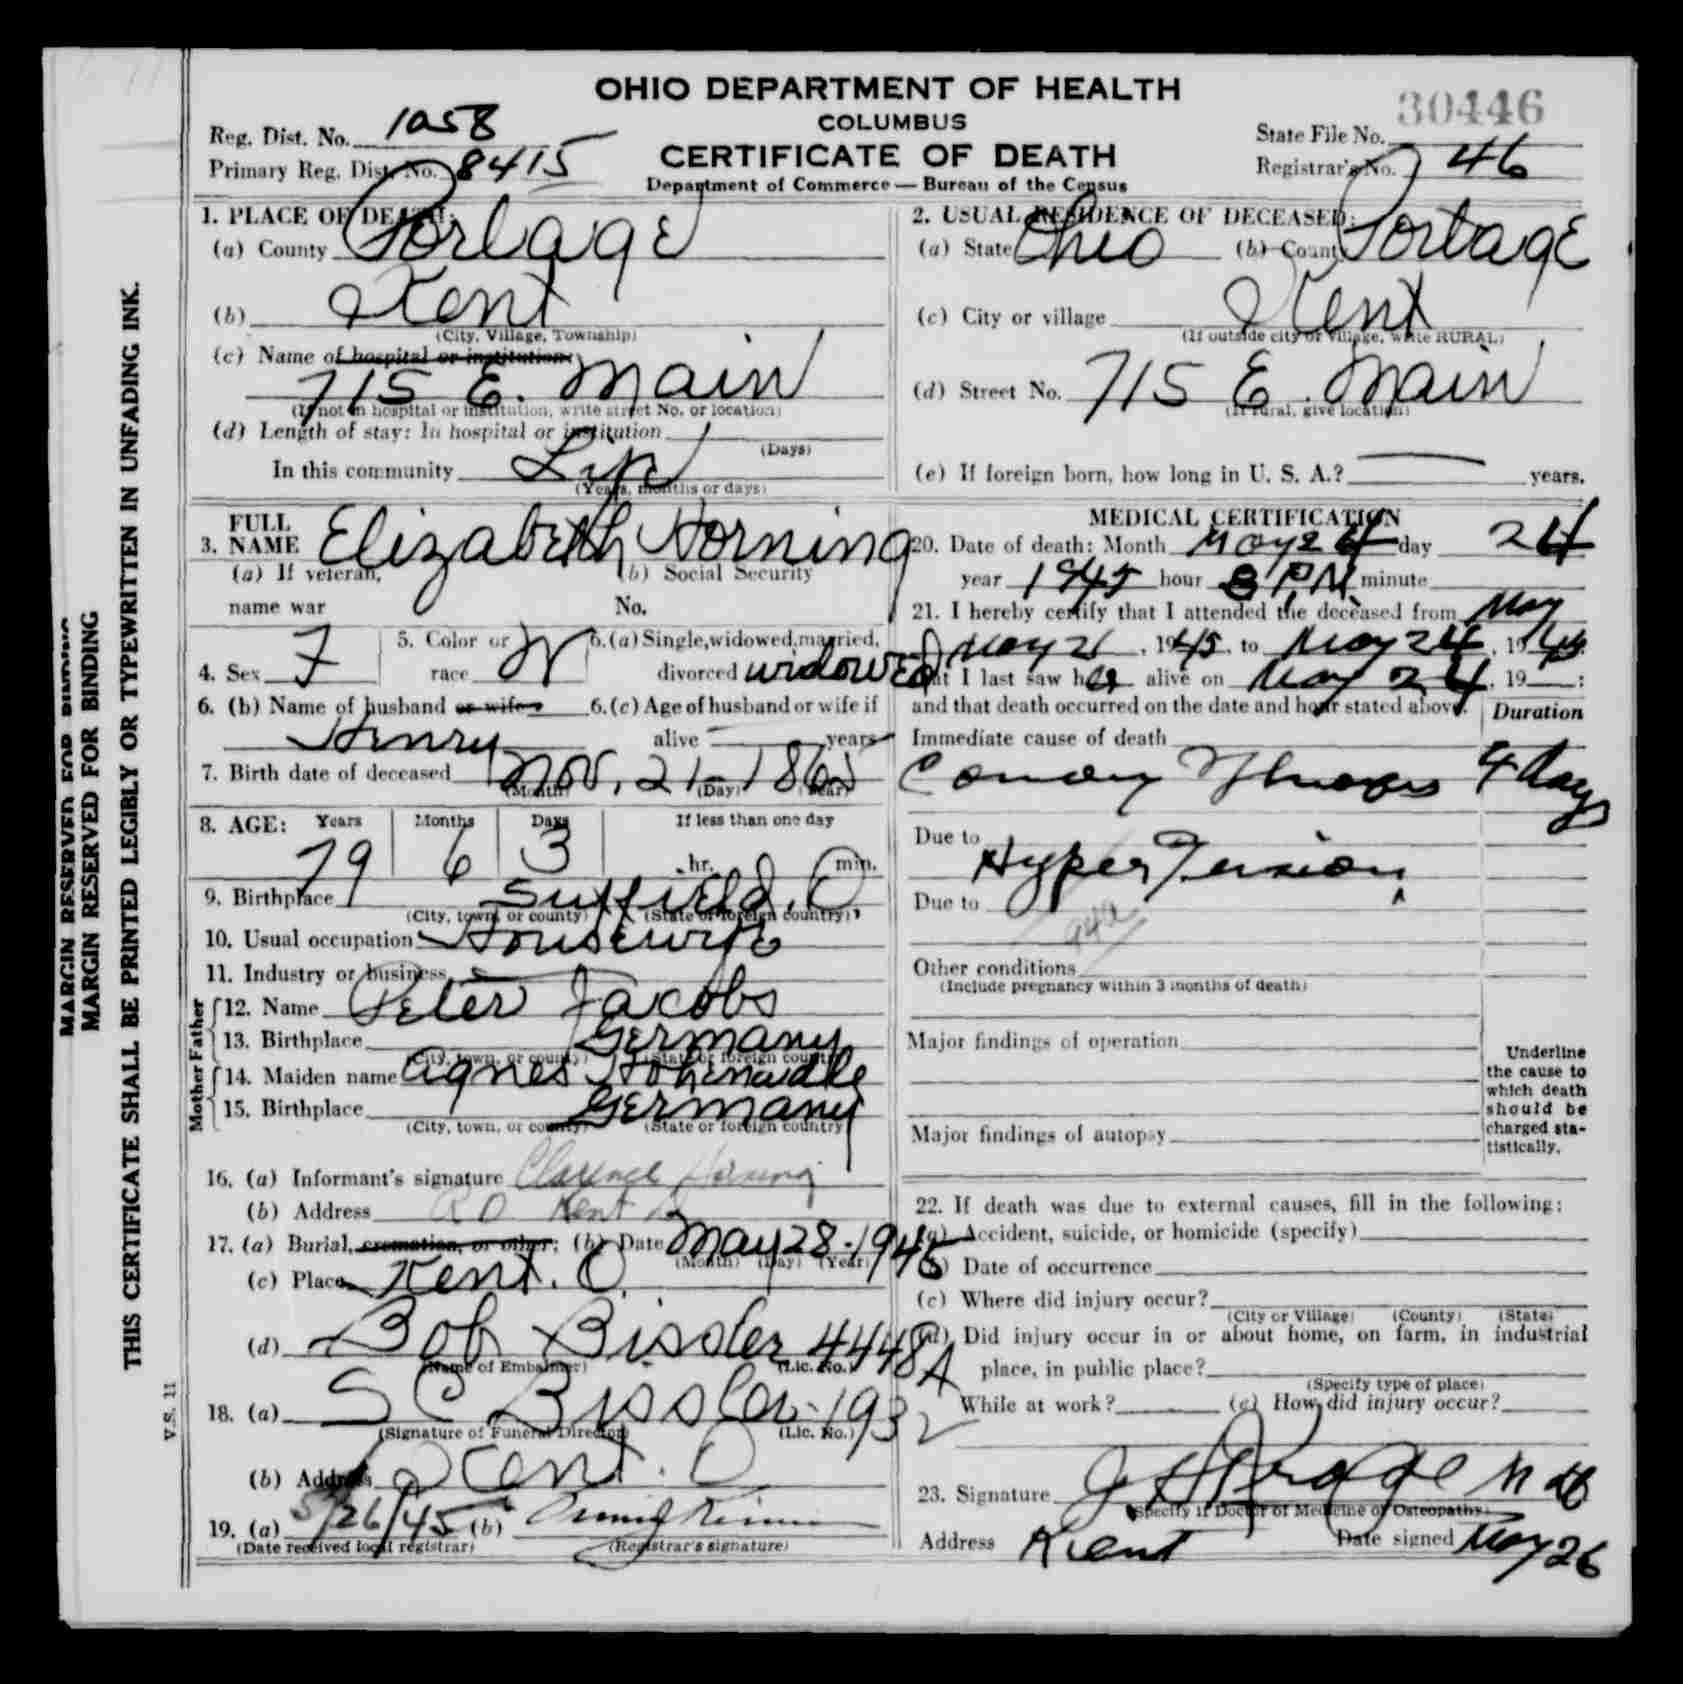 OHIO DEPARTMENT OF HEALTH
COLUMBUS
CERTIFICATE OF DEATH
Department of Commerce — Bureau of the Census
Reg. Dist. No. 1058
Primary Reg. Dist. No. 8415
30446
State File No.
Registrar's No. 46
1. PLACE OF DEATH:
(a) County Portage
(b) Kent
(City, Village, Township)
(c) Name of hospital or institution:
715 E. Main
(If not in hospital or institution, write street No. or location)
(d) Length of stay: In hospital or institution
(Days)
In this community Life
(Years, months or days)
2. USUAL RESIDENCE OF DECEASED:
(a) State Ohio (b) County Portage
(c) City or village Kent
(If outside city or village, write RURAL)
(d) Street No. 715 E. Main
(If rural, give location)
(e) If foreign born, how long in U. S. A.? years.
3. FULL NAME Elizabeth Horning
(a) If veteran, name war
(b) Social Security No.
4. Sex F
5. Color or race W
6. (a) Single, widowed, married, divorced widowed
6. (b) Name of husband or wife Henry
6. (c) Age of husband or wife if alive years
7. Birth date of deceased Nov. 21 - 1865
(Month) (Day) (Year)
8. AGE: Years Months Days If less than one day
79 6 3 hr. min.
9. Birthplace Suffield, O
(City, town, or county) (State or foreign country)
10. Usual occupation Housewife
11. Industry or business
Father
12. Name Peter Jacobs
13. Birthplace Germany
(City, town, or county) (State or foreign country)
Mother
14. Maiden name Agnes
15. Birthplace Germany
(City, town, or county) (State or foreign country)
16. (a) Informant's signature Clarence Horning
(b) Address RD Kent O
17. (a) Burial, cremation, or other; (b) Date May 28-1945
(Month) (Day) (Year)
(c) Place Kent. O.
(d) Bob Bissler 4448A
(Name of Embalmer) (Lic. No.)
18. (a) S C Bissler - 1932
(Signature of Funeral Director) (Lic. No.)
(b) Address Kent. O
19. (a) 5/26/45 (b)
(Date received local registrar) (Registrar's signature)
MEDICAL CERTIFICATION
20. Date of death: Month May 24 day 24
year 1945 hour 8 P.M. minute
21. I hereby certify that I attended the deceased from May
May 21, 1945, to May 24, 1945
that I last saw her alive on May 24, 19 :
and that death occurred on the date and hour stated above. Duration
Immediate cause of death
Coronary Thrombosis 4 days
Due to Hypertension
Due to
94a
Other conditions
(Include pregnancy within 3 months of death)
Major findings of operation
Major findings of autopsy
Underline
the cause to
which death
should be
charged sta-
tistically.
22. If death was due to external causes, fill in the following:
(a) Accident, suicide, or homicide (specify)
(b) Date of occurrence
(c) Where did injury occur?
(City or Village) (County) (State)
(d) Did injury occur in or about home, on farm, in industrial
place, in public place?
(Specify type of place)
While at work? (e) How did injury occur?
23. Signature
(Specify if Doctor of Medicine or Osteopathy)
Address Kent Date signed May 26
MARGIN RESERVED FOR BINDING
MARGIN RESERVED FOR BINDING
THIS CERTIFICATE SHALL BE PRINTED LEGIBLY OR TYPEWRITTEN IN UNFADING INK.
V.S. 11